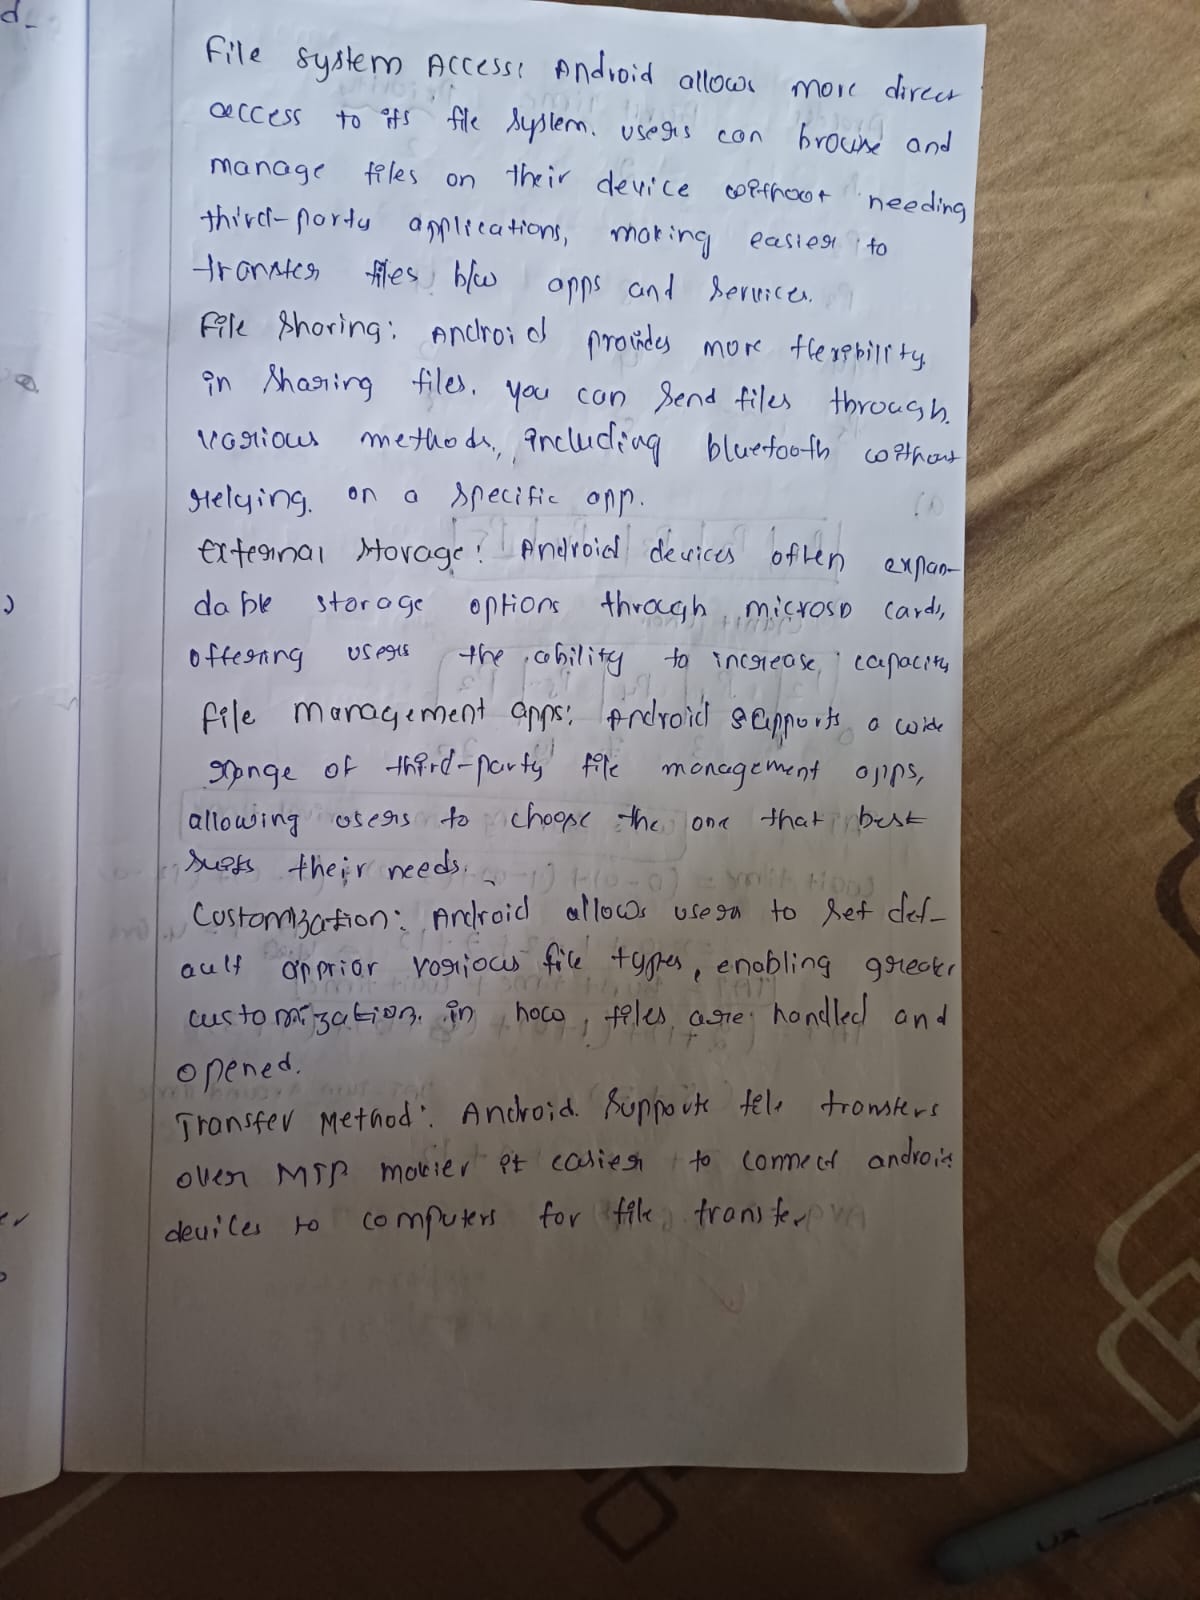 File System Access: Android allows more direct
access to its file system. users can browse and
manage files on their device without needing
third-party applications, making easier to
transfer files b/w apps and services.
File Sharing: Android provides more flexibility
in sharing files. you can send files through
various methods, including bluetooth without
relying on a specific app.
External storage: Android devices often expan-
dable storage options through microSD cards,
offering users the ability to increase capacity
file management apps: Android supports a wide
range of third-party file management apps,
allowing users to choose the one that best
suits their needs.
Customization: Android allows users to set def-
ault various file types, enabling greater
customization in how files are handled and
opened.
Transfer Method: Android supports file transfers
over MTP it easier to connect android
devices to computers for file transfer